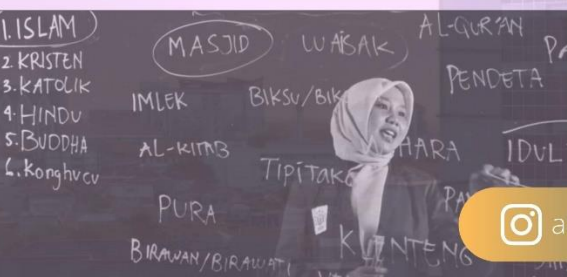 1. ISLAM
2. KRISTEN
3. KATOLIK
4. HINDU
5. BUDDHA
6. Konghucu
MASJID WAISAK AL-QUR'AN
IMLEK BIKSU/BIK PENDETA
AL-KITAB TIPITAKA HARA IDUL
PURA
BIRAWAN/BIRAWATI KLENTENG